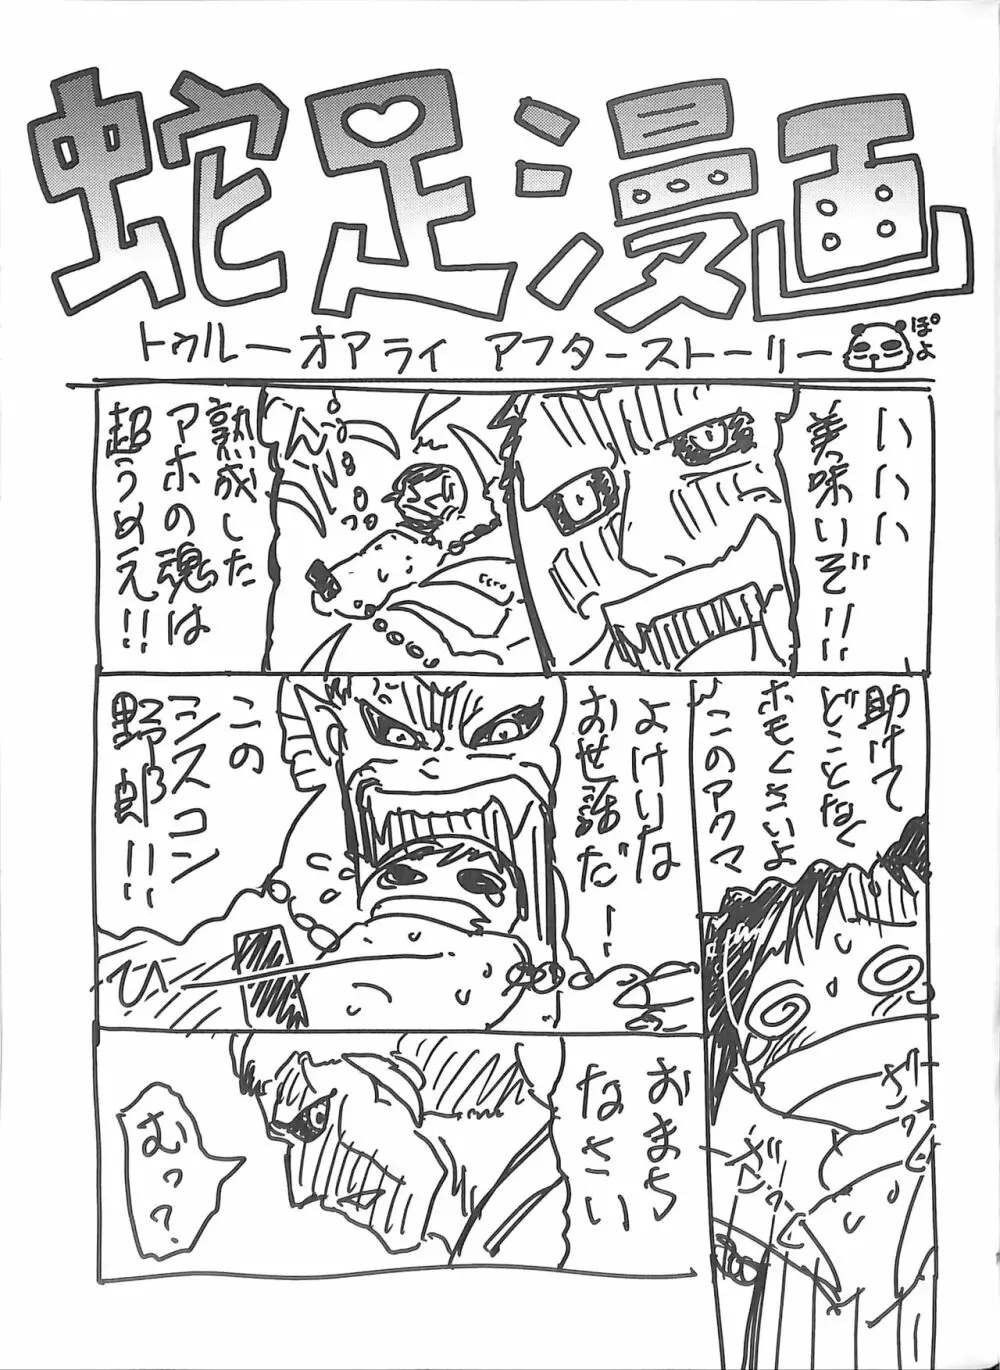 蛇足漫画
トゥルーオアライ アフターストーリー
ぽよ
いいい
美味いぞ!!
熟成した
アホの魂は
超うめえ!!
助けて
どことなく
ホモくさいよ
このアクマ
よけいな
お世話だー!
この
シスコン
野郎!!
ひ
ざっ
ざっ
おまち
なさい
むっ?